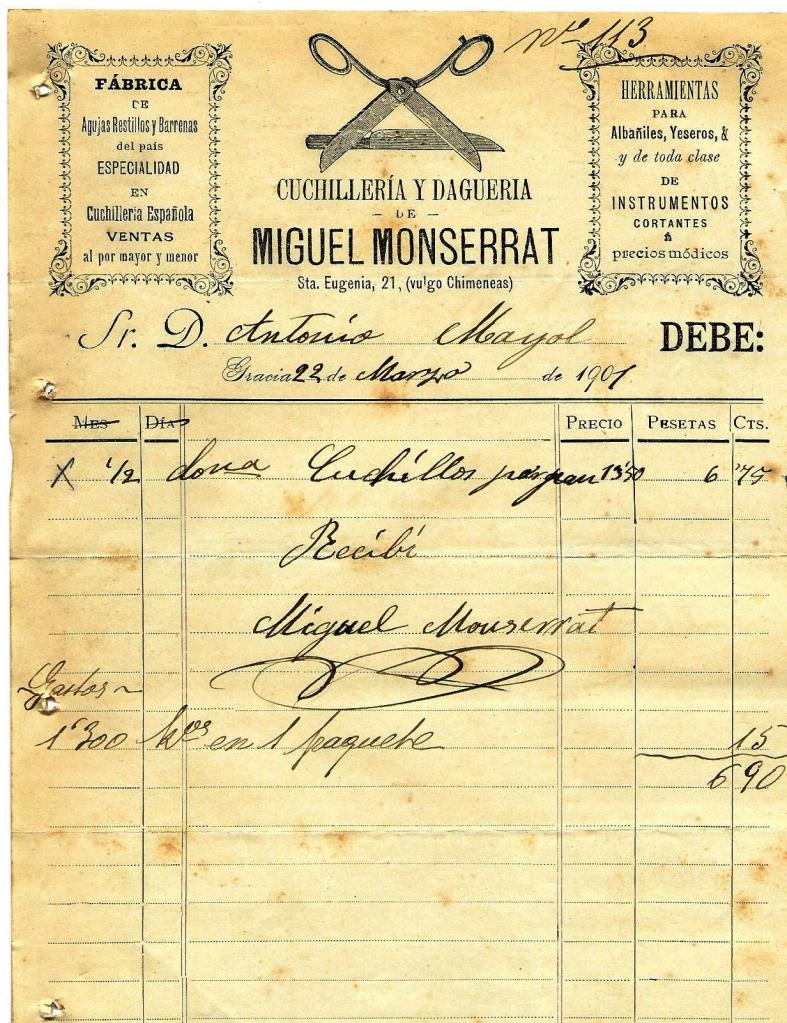 Nº 113
FÁBRICA
DE
Agujas Restillos y Barrenas
del país
ESPECIALIDAD
EN
Cuchillería Española
VENTAS
al por mayor y menor
CUCHILLERÍA Y DAGUERIA
— DE —
MIGUEL MONSERRAT
Sta. Eugenia, 21, (vulgo Chimeneas)
HERRAMIENTAS
PARA
Albañiles, Yeseros, &
y de toda clase
DE
INSTRUMENTOS
CORTANTES
á
precios módicos
Sr. D. Antonio Mayol DEBE:
Gracia 22 de Marzo de 1901
MES DÍA PRECIO PESETAS CTS.
X 1/2 dona Cuchillos para pan 13'50 6 '75
Recibí
Miguel Monserrat
Gastos
1'300 kos en 1 paquete 15
6 90